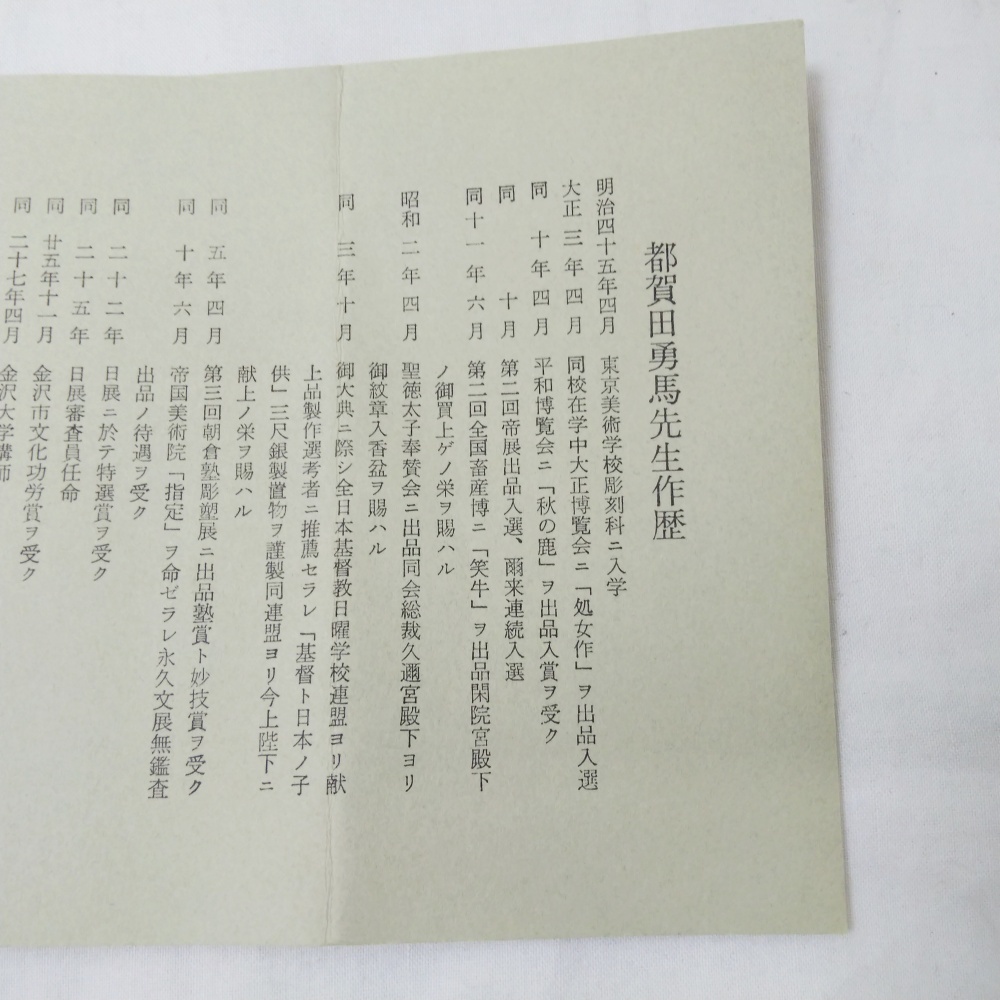 都賀田勇馬先生作歴
明治四十五年四月 東京美術学校彫刻科ニ入学
大正三年四月 同校在学中大正博覧会ニ「処女作」ヲ出品入選
同 十年四月 平和博覧会ニ「秋の鹿」ヲ出品入賞ヲ受ク
同 十月 第二回帝展出品入選、爾来連続入選
同十一年六月 第二回全国畜産博ニ「笑牛」ヲ出品閑院宮殿下
ノ御買上ゲノ栄ヲ賜ハル
昭和二年四月 聖徳太子奉賛会ニ出品同会総裁久邇宮殿下ヨリ
御紋章入香盆ヲ賜ハル
同 三年十月 御大典ニ際シ全日本基督教日曜学校連盟ヨリ献
上品製作選考者ニ推薦セラレ「基督ト日本ノ子
供」三尺銀製置物ヲ謹製同連盟ヨリ今上陛下ニ
献上ノ栄ヲ賜ハル
同 五年四月 第三回朝倉塾彫塑展ニ出品塾賞ト妙技賞ヲ受ク
同 十年六月 帝国美術院「指定」ヲ命ゼラレ永久文展無鑑査
出品ノ待遇ヲ受ク
同 二十二年 日展ニ於テ特選賞ヲ受ク
同 二十五年 日展審査員任命
同 廿五年十一月 金沢市文化功労賞ヲ受ク
同 二十七年四月 金沢大学講師